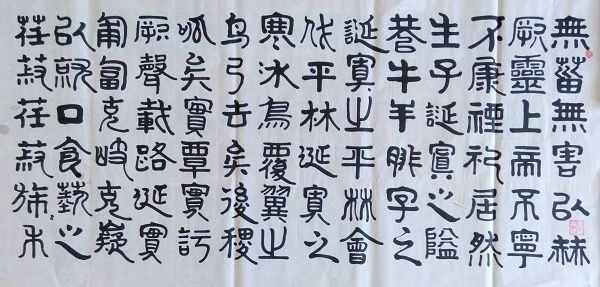 無菑無害以赫
厥靈上帝不寧
不康禋祀居然
生子誕寘之隘
巷牛羊腓字之
誕寘之平林會
伐平林誕寘之
寒冰鳥覆翼之
鳥乃去矣後稷
呱矣實覃實訏
厥聲載路誕實
匍匐克岐克嶷
以就口食藝之
荏菽荏菽旆々禾